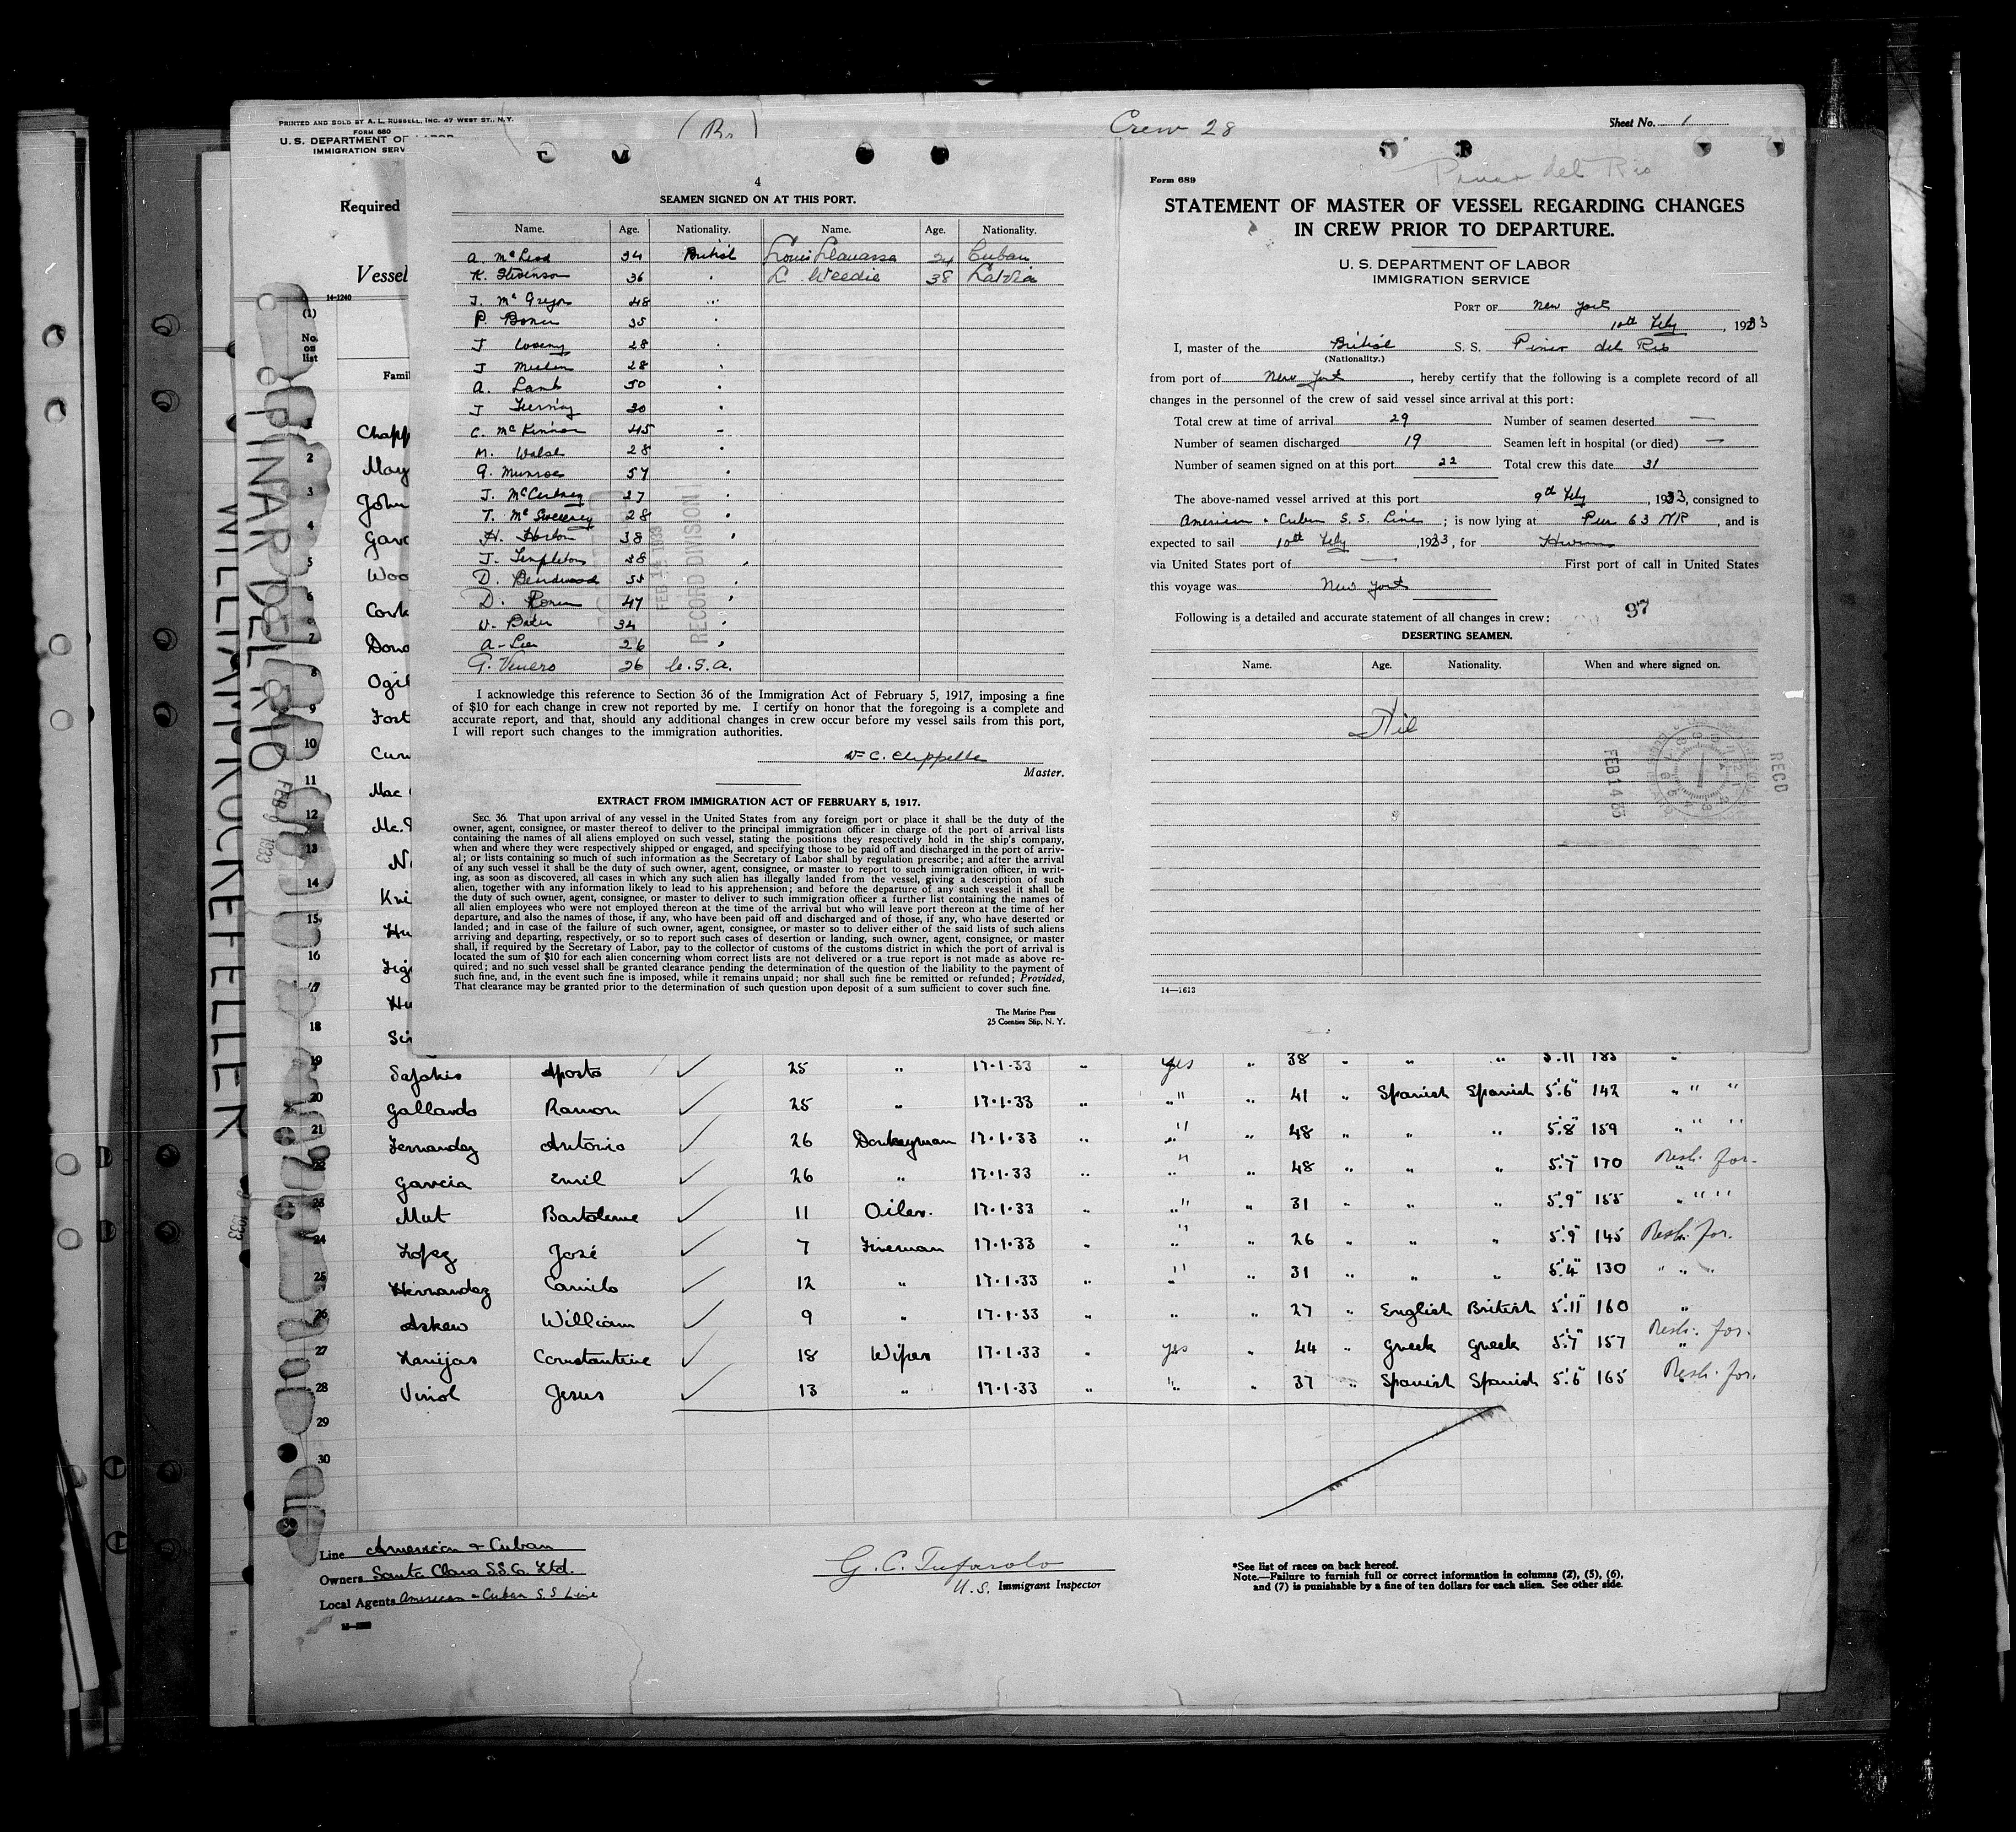 PRINTED AND SOLD BY A. L. RUSSELL, INC. 47 WEST ST., N.Y.
FORM 680
U. S. DEPARTMENT OF LABOR
IMMIGRATION SERV
Required
Vessel
14-1240
(1)
No. on list
Famil
(Br)
Crew 28
Sheet No. 1
4
SEAMEN SIGNED ON AT THIS PORT.
Name. Age. Nationality. Name. Age. Nationality.
A. McLeod 34 British Louis 24 Cuban
K. Stevenson 36 " L. Weedie 38 Latvia
J. McGregor 48 "
P. Boner 35 "
J 28 "
J 28 "
A. Lamb 50 "
J 30 "
C. McKinnon 45 "
M. Walsh 28 "
G. Munroe 57 "
J. McCartney 27 "
T. McSweeney 28 "
H. Horton 38 "
J. Templeton 38 "
D. "
D. 47 "
W. Baker 34 "
A. Lee 26 "
G. Venero 26 U.S.A.
I acknowledge this reference to Section 36 of the Immigration Act of February 5, 1917, imposing a fine
of $10 for each change in crew not reported by me. I certify on honor that the foregoing is a complete and
accurate report, and that, should any additional changes in crew occur before my vessel sails from this port,
I will report such changes to the immigration authorities.
W. C. Chappelle
Master.
EXTRACT FROM IMMIGRATION ACT OF FEBRUARY 5, 1917.
SEC. 36. That upon arrival of any vessel in the United States from any foreign port or place it shall be the duty of the
owner, agent, consignee, or master thereof to deliver to the principal immigration officer in charge of the port of arrival lists
containing the names of all aliens employed on such vessel, stating the positions they respectively hold in the ship's company,
when and where they were respectively shipped or engaged, and specifying those to be paid off and discharged in the port of arriv-
al; or lists containing so much of such information as the Secretary of Labor shall by regulation prescribe; and after the arrival
of any such vessel it shall be the duty of such owner, agent, consignee, or master to report to such immigration officer, in writ-
ing, as soon as discovered, all cases in which any such alien has illegally landed from the vessel, giving a description of such
alien, together with any information likely to lead to his apprehension; and before the departure of any such vessel it shall be
the duty of such owner, agent, consignee, or master to deliver to such immigration officer a further list containing the names of
all alien employees who were not employed thereon at the time of the arrival but who will leave port thereon at the time of her
departure, and also the names of those, if any, who have been paid off and discharged and of those, if any, who have deserted or
landed; and in case of the failure of such owner, agent, consignee, or master so to deliver either of the said lists of such aliens
arriving and departing, respectively, or so to report such cases of desertion or landing, such owner, agent, consignee, or master
shall, if required by the Secretary of Labor, pay to the collector of customs of the customs district in which the port of arrival is
located the sum of $10 for each alien concerning whom correct lists are not delivered or a true report is not made as above re-
quired; and no such vessel shall be granted clearance pending the determination of the question of the liability to the payment of
such fine, and, in the event such fine is imposed, while it remains unpaid; nor shall such fine be remitted or refunded; Provided,
That clearance may be granted prior to the determination of such question upon deposit of a sum sufficient to cover such fine.
The Marine Press
25 Coenties Slip, N. Y.
FEB 14 1933
RECORD DIVISION
Form 689
Pinar del Rio
STATEMENT OF MASTER OF VESSEL REGARDING CHANGES
IN CREW PRIOR TO DEPARTURE.
U. S. DEPARTMENT OF LABOR
IMMIGRATION SERVICE
PORT OF New York
10th Feby, 1933
I, master of the British S. S. Pinar del Rio
(Nationality.)
from port of New York, hereby certify that the following is a complete record of all
changes in the personnel of the crew of said vessel since arrival at this port:
Total crew at time of arrival 29 Number of seamen deserted —
Number of seamen discharged 19 Seamen left in hospital (or died) —
Number of seamen signed on at this port 22 Total crew this date 31
The above-named vessel arrived at this port 9th Feby, 1933, consigned to
American & Cuban S. S. Line; is now lying at Pier 63 NR, and is
expected to sail 10th Feby, 1933, for
via United States port of — First port of call in United States
this voyage was New York
Following is a detailed and accurate statement of all changes in crew: 97
DESERTING SEAMEN.
Name. Age. Nationality. When and where signed on.
Nil
FEB 14 33
RECD
14—1613
PINAR DEL RIO
FEB 9 1933
WILLIAM ROCKEFELLER
1 Chapp
2 May
3 John
4 Gard
5 Woo
6 Cork
7 Dono
8 Ogil
9 Fost
10 Curr
11 Mac
12 Mc.
13 N
14 Kni
15 Hu
16 Fig
17 Hu
18 Sin
19 Safakis Aposto 25 " 17.1.33 " yes " 38 " " " 5.11 185 "
20 Gallardo Ramon 25 " 17.1.33 " " " 41 " Spanish Spanish 5'6" 142 " " "
21 Fernandez Antonio 26 Donkeyman 17.1.33 " " " 48 " " " 5'8" 159 " " "
22 Garcia Emil 26 " 17.1.33 " " " 48 " " " 5'7" 170 Resh. for.
23 Mut Bartolome 11 Oiler. 17.1.33 " " " 31 " " " 5'9" 155 " " "
24 Lopez José 7 Fireman 17.1.33 " " " 26 " " " 5'9" 145 Resh. for.
25 Hernandez Camilo 12 " 17.1.33 " " " 31 " " " 5'4" 130 " " "
26 Askew William 9 " 17.1.33 " " " 27 " English British 5'11" 160 "
27 Constantine 18 Wiper 17.1.33 " yes " 44 " Greek Greek 5'7" 157 Resh. for.
28 Viñol Jesus 13 " 17.1.33 " " " 37 " Spanish Spanish 5'6" 165 Resh. for.
29
30
Line American & Cuban
Owners Santa Clara S.S. Co. Ltd.
Local Agents American & Cuban S.S Line
G. C. Tufarolo
U.S. Immigrant Inspector
*See list of races on back hereof.
Note.—Failure to furnish full or correct information in columns (2), (5), (6),
and (7) is punishable by a fine of ten dollars for each alien. See other side.